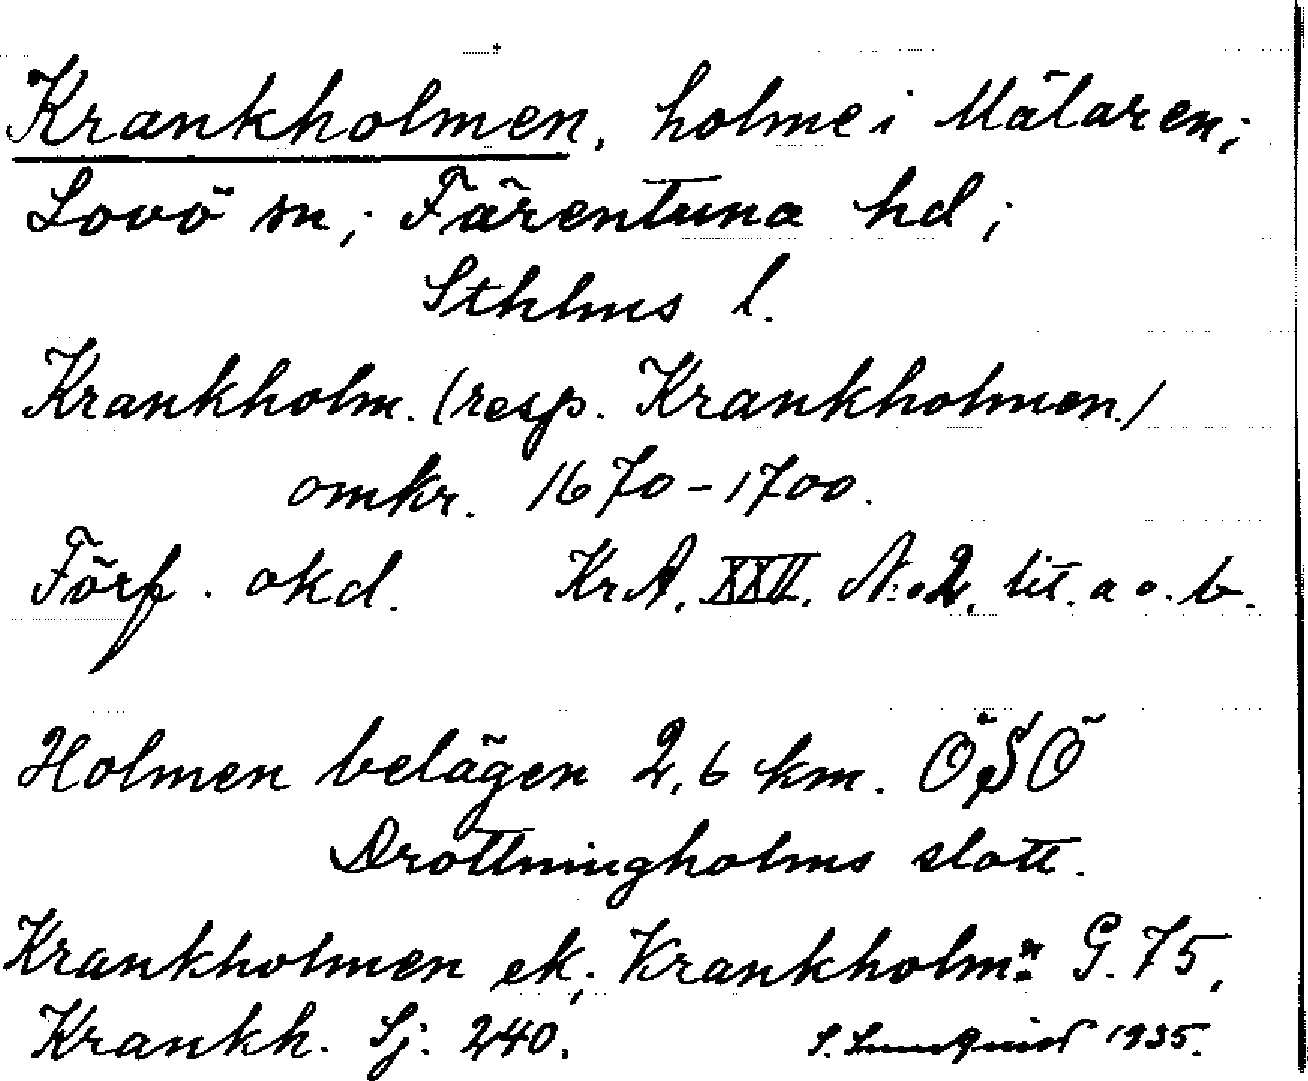 Krankholmen, holme i Mälaren;
Lovö sn; Färentuna hd;
Sthlms l.
Krankholm. (resp. Krankholmen)
omkr. 1670-1700.
Förf. okd. KrA. XXII. N:o 2, lit. a o. b.
Holmen belägen 2,6 km. ÖSÖ
Drottningholms slott.
Krankholmen ek; Krankholm:n G. 75,
Krankh. Sj. 240. S. 1935.